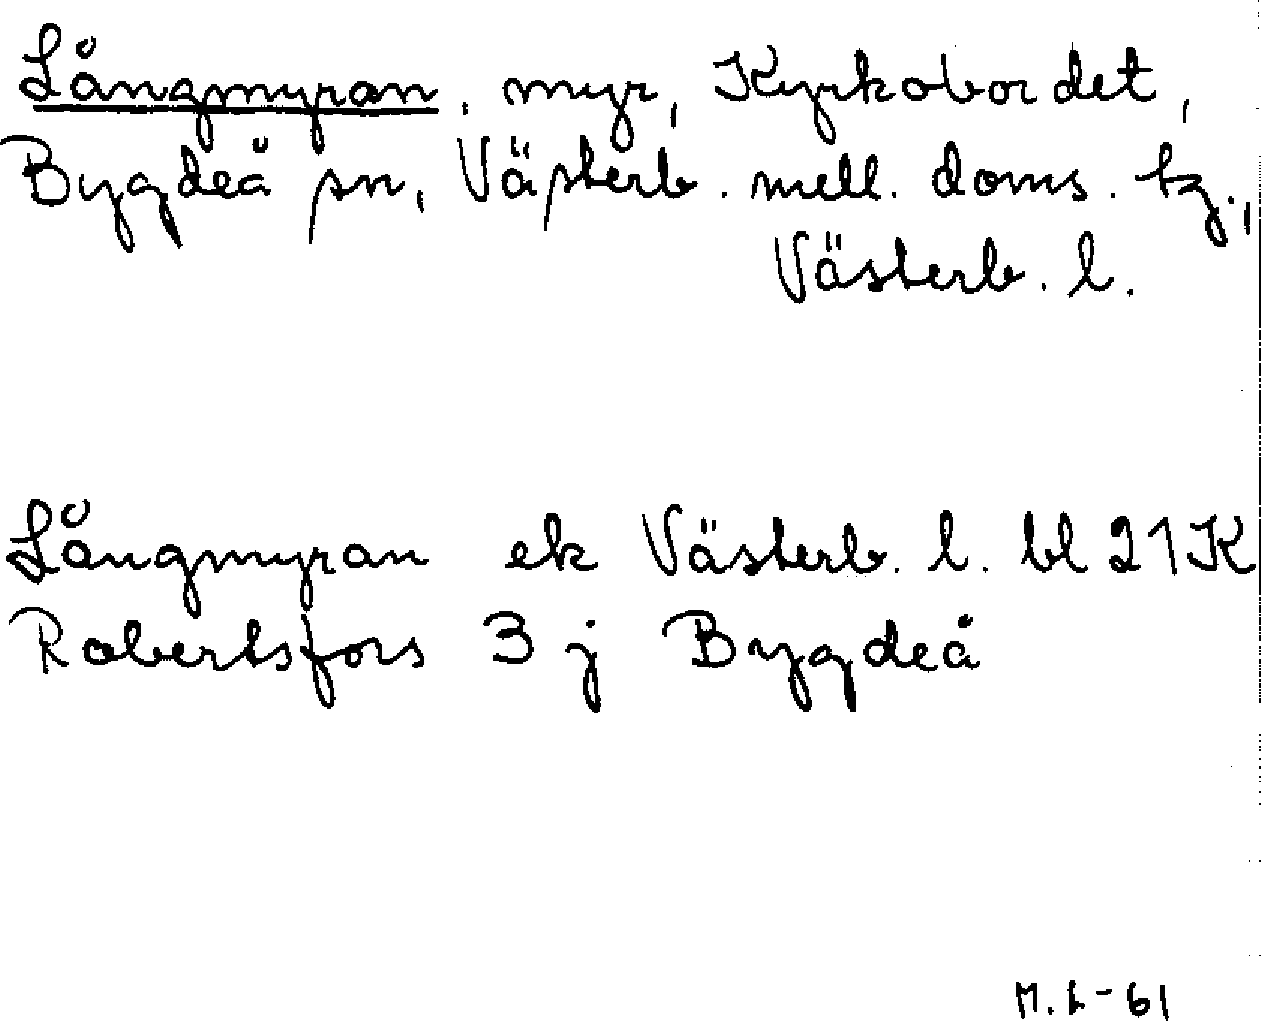 Långmyran, myr, Kyrkobordet,
Bygdeå sn, Västerb. mell. doms. tg.,
Västerb. l.
Långmyran ek Västerb. l. bl 21K
Robertsfors 3 j Bygdeå
M.L-61